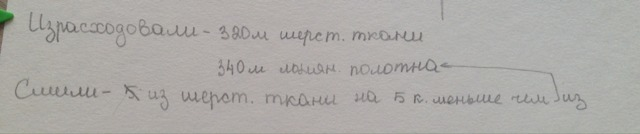 Израсходовали - 320м шерст. ткани
340м льнян. полотна
Сшили - из шерст. ткани на 5 к. меньше чем из